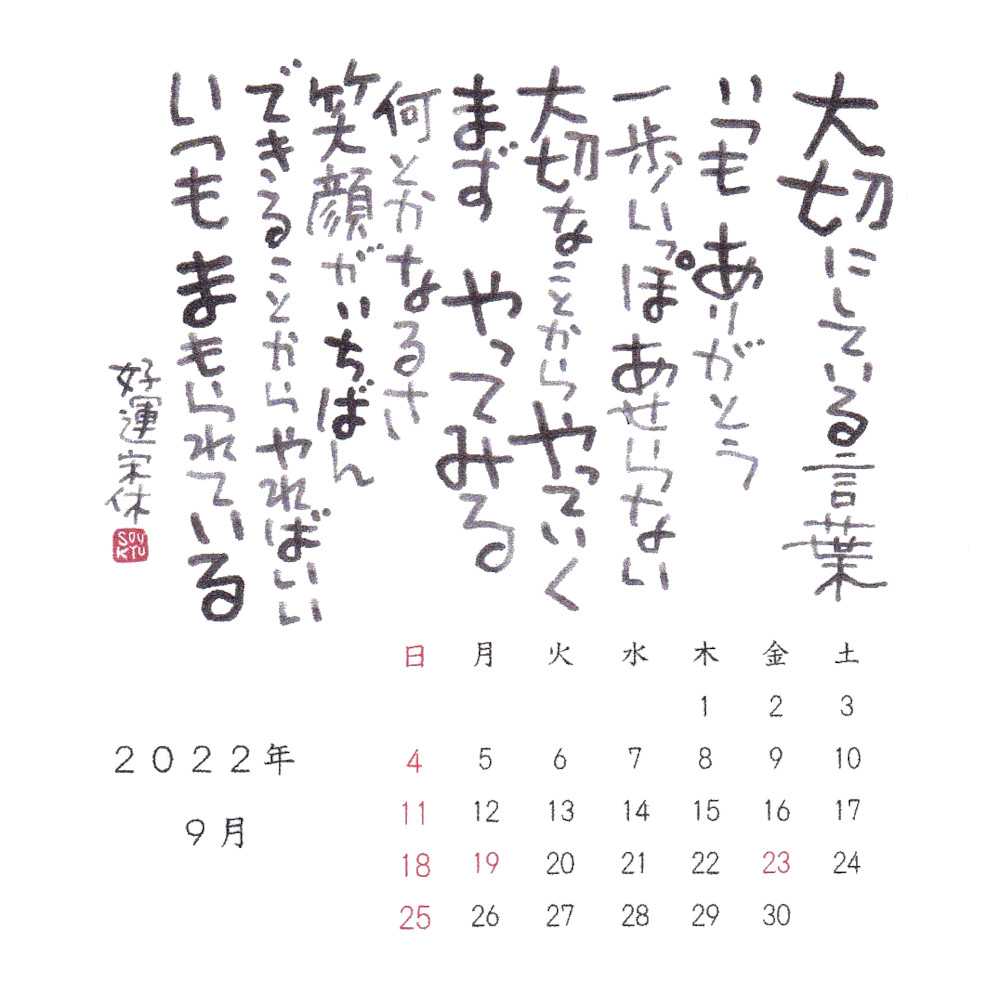 大切にしている言葉
いつも ありがとう
一歩いっぽ あせらない
大切なことから やっていく
まず やってみる
何とかなるさ
笑顔がいちばん
できることからやればいい
いつも まもられている
好運宋休
SOU
KYU
2022年
9月
日 月 火 水 木 金 土
1 2 3
4 5 6 7 8 9 10
11 12 13 14 15 16 17
18 19 20 21 22 23 24
25 26 27 28 29 30